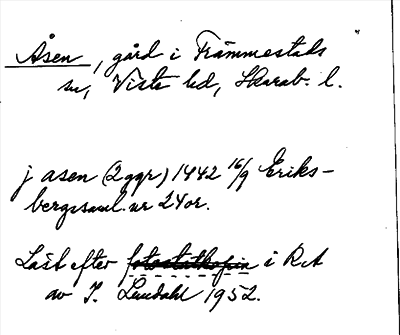 Åsen, gård i Främmestads
sn, Viste hd, Skarab. l.
j asen (2 ggr) 1442 16/9 Eriks-
bergssaml. nr 24 or.
Läst efter fotostatkopia i RA
av I. Lundahl 1952.